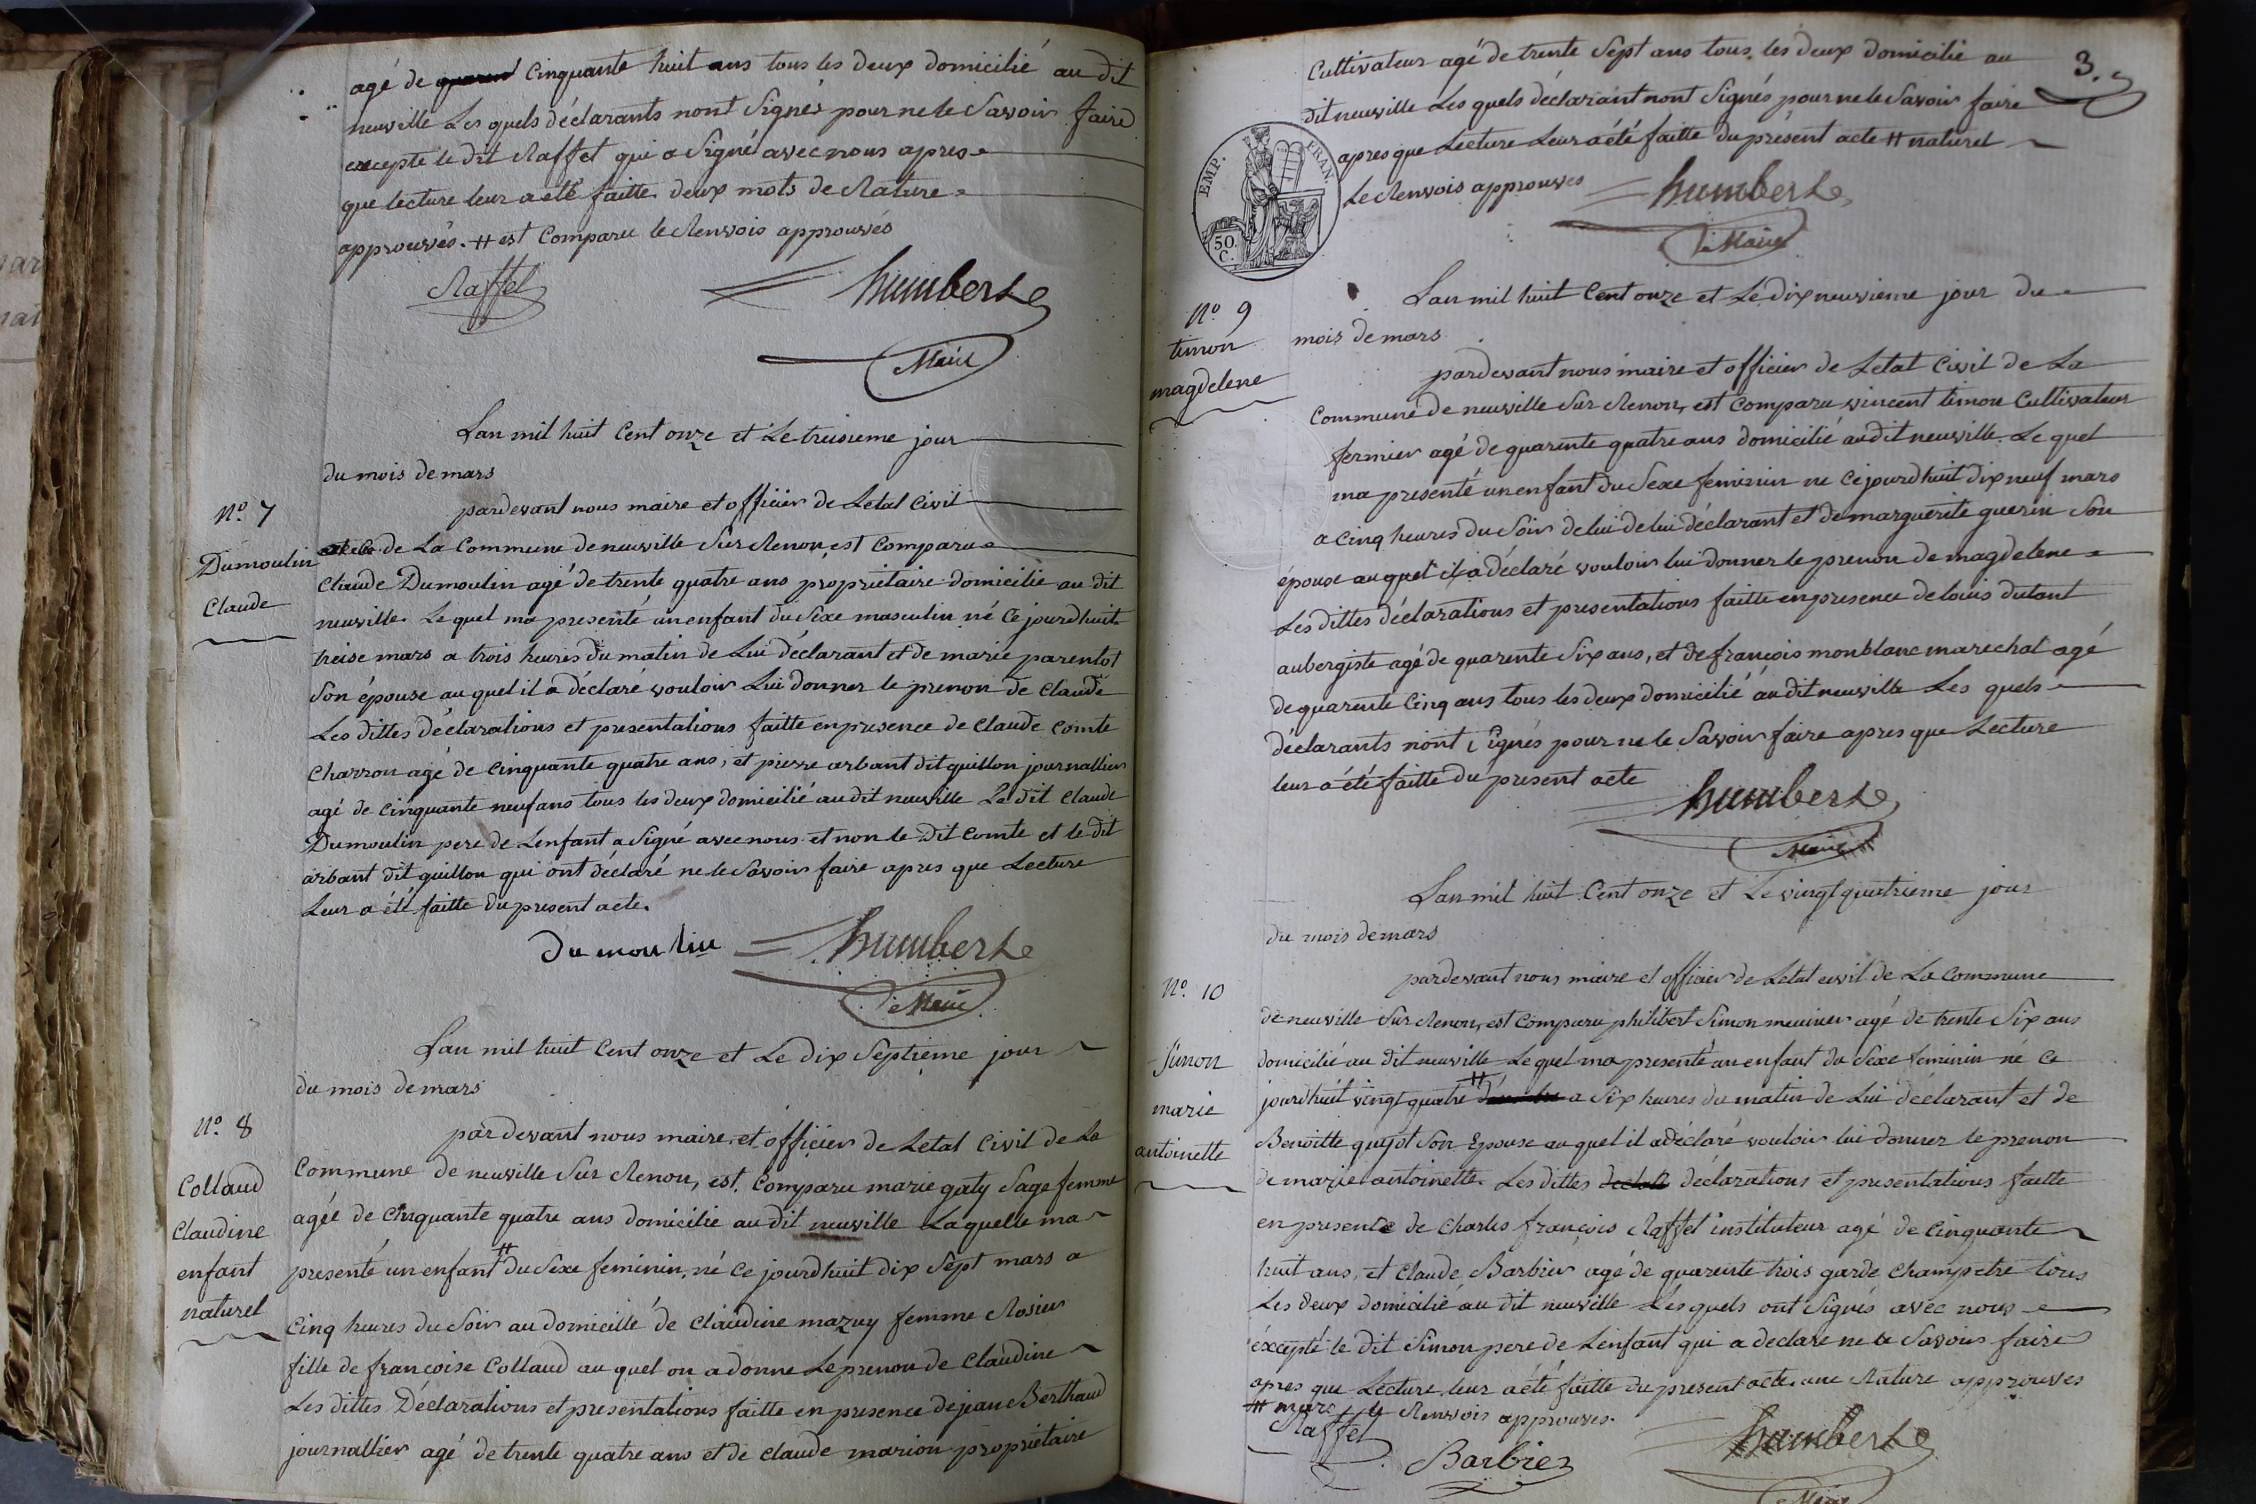 agé de quaran cinquante huit ans tous les deux domicilié au dit
neuville Les quels déclarants nont Signés pour ne le Savoir faire
excepté le dit Raffet qui a Signé avec nous apres
que lecture leur a eté faitte deux mots de Rature
approuvés. # est Comparu le Renvois approuvés
Raffet
humbert
Maire
Lan mil huit Cent onze et Le treisieme jour
du mois de mars
N.º 7
Dumoulin
Claude
pardevant nous maire et officier de Letat Civil
de La Commune de neuville Sur Renon, est Comparu
Claude Dumoulin agé de trente quatre ans propriétaire domicilié au dit
neuville. Le quel ma presenté un enfant du Sexe masculin né Ce jourdhuit
treise mars a trois heures du matin de Lui déclarant et de marie parentot
Son épouse au quel il a déclaré vouloir Lui donner le prenon de Claude
Les dittes déclarations et presentations faitte en presence de Claude Comte
Charron agé de Cinquante quatre ans, et pierre arbant dit guillon journallier
agé de Cinquante neuf ans tous les deux domicilié au dit neuville Le dit Claude
Dumoulin pere de Lenfant a Signé avec nous et non le dit Comte et le dit
arbant dit guillon qui ont déclaré ne le Savoir faire apres que Lecture
Leur a été faitte du present acte.
Du moulin
humbert
Maire
Lan mil huit Cent onze et Le dix Septieme jour
du mois de mars
N.º 8
Collaud
Claudine
enfant
naturel
par devant nous maire et officier de Letat Civil de La
Commune de neuville Sur Renon, est Comparu marie gaty Sage femme
agée de Cinquante quatre ans domicilié au dit neuville Laquelle ma
presenté un enfant # du Sexe feminin, né Ce jourdhuit dix Sept mars a
Cinq heures du Soir au domicille de Claudine mazuy femme Rosier
fille de françoise Collaud au quel on a donne Le prenon de Claudine
Les dittes Déclarations et presentations faitte en presence de jean Berthaud
journallier agé de trente quatre ans et de Claude marion propriétaire
3.
Cultivateur agé de trente Sept ans tous les deux domicilié au
dit neuville Les quels déclarant nont Signés pour ne le Savoir faire
apres que Lecture Leur a été faitte du présent acte # naturel
Le Renvois approuvés
humbert
Maire
EMP. FRAN.
50. C.
N.º 9
timon
magdelene
Lan mil huit Cent onze et Le dix neuvieme jour du
mois de mars
pardevant nous maire et officier de Letat Civil de La
Commune de neuville Sur Renon, est Comparu vincent timon Cultivateur
fermier agé de quarente quatre ans domicilié au dit neuville. Le quel
ma presenté un enfant du Sexe feminin ne Ce jourdhuit dix neuf mars
a Cinq heures du Soir de lui de lui déclarant et de marguerite guerin Son
épouse au quel il a déclaré vouloir lui donner le prenon de magdelene
Les dittes déclarations et presentations faitte en presence de louis dutant
aubergiste agé de quarente Six ans, et de françois monblanc marechal agé
de quarente Cinq ans tous les deux domicilié au dit neuville Les quels
declarants nont Signés pour ne le Savoir faire apres que Lecture
leur a été faitte du present acte
humbert
Maire
Lan mil huit Cent onze et Le vingt quatrieme jour
du mois de mars
N.º 10
Simon
marie
antoinette
pardevant nous maire et officier de Letat civil de La Commune
de neuville Sur Renon, est Comparu philibert Simon meunier agé de trente Six ans
domicilié au dit neuville Le quel ma presenté un enfant du Sexe feminin né Ce
jourdhuit vingt quatre # a Six heures du matin de Lui déclarant et de
Benoitte guyot Son Epouse au quel il a déclaré vouloir lui donner le prenon
de marie antoinette. Les dittes déclarations et presentations faitte
en presence de Charles françois Raffet instituteur agé de Cinquante
huit ans, et Claude Barbier agé de quarente trois garde Champetre tous
Les deux domicilié au dit neuville Les quels ont Signés avec nous
éxcepté le dit Simon pere de Lenfant qui a declaré ne le Savoir faire
apres que Lecture leur a été faitte du present acte une Rature approuvés
# mars le Renvois approuvés.
Raffet
Barbier
humbert
Maire